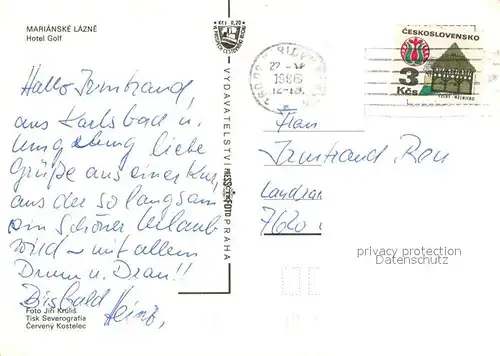 MARIÁNSKÉ LÁZNĚ
Hotel Golf
Hallo Irmtraud,
aus Karlsbad u.
Umgebung liebe
Grüße aus einer Kur,
aus der so langsam
ein schöner Urlaub
wird – mit allem
Drum u. Dran!!
Bis bald Heinz,
Foto Jiří Kruliš
Tisk Severografia
Červený Kostelec
Kčs 0,20
VYDAVATELSTVÍ PRESSFOTO PRAHA
1986
ČESKOSLOVENSKO
3
Kčs
Irmtraud
7620
privacy protection
Datenschutz